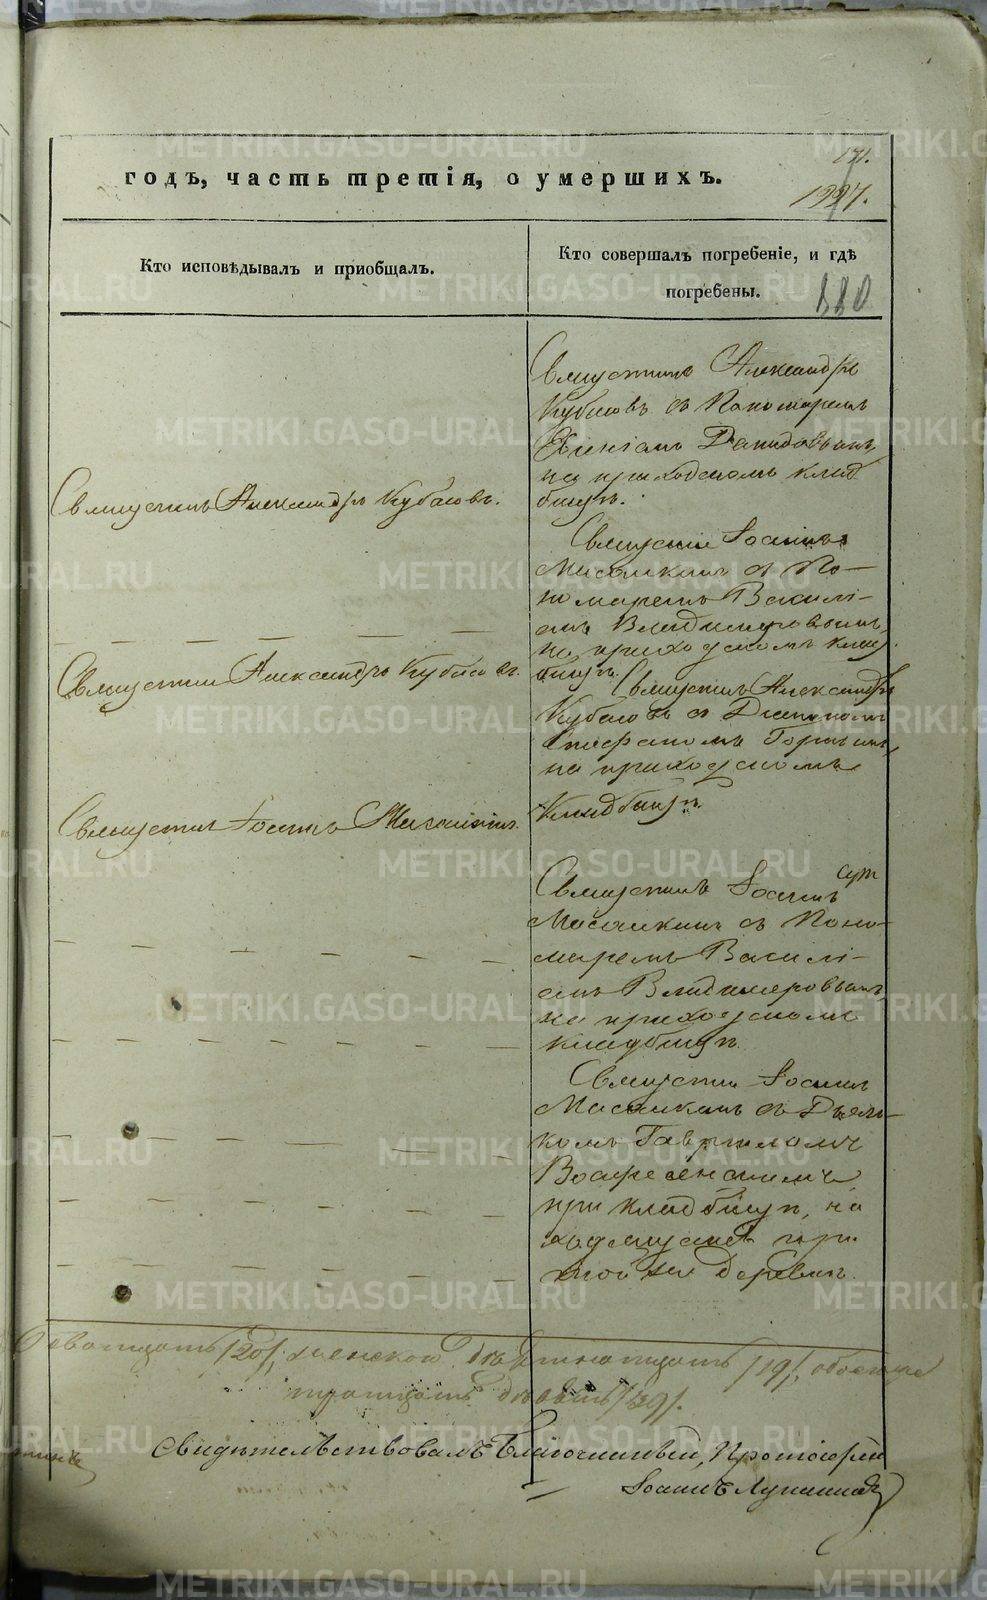 METRIKI.GASO-URAL.RU
171.
годъ, часть третія, о умершихъ.
1927.
Кто исповѣдывалъ и пріобщалъ.
Кто совершалъ погребеніе, и гдѣ
погребены.
880
Священникъ Александръ
Кубасовъ съ Пономаремъ
Давидовымъ,
на приходскомъ клад
бищѣ.
Священникъ Александръ Кубасовъ.
Священникъ Іоаннъ
съ По-
номаремъ Василі-
емъ Владимеровымъ,
на приходскомъ клад
бищѣ.
Священникъ Александръ Кубасовъ.
Священникъ Александръ
Кубасовъ съ Дьячкомъ
Стефаномъ
на приходскомъ
Кладбищѣ.
Священникъ Іоаннъ
Священникъ Іоаннъ
съ Поно-
маремъ Василі-
емъ Владимеровымъ,
на приходскомъ
кладбищѣ.
Священникъ Іоаннъ
съ Дьяч-
комъ Гавриломъ
Воскресенскимъ
при кладбищѣ, на
ходящемся при
деревнѣ.
/20/, женскаго девятнатцать /19/, обоего
тратцать девять /39/.
Свидѣтельствовалъ Благочинный, Протоіерей
Іоаннъ